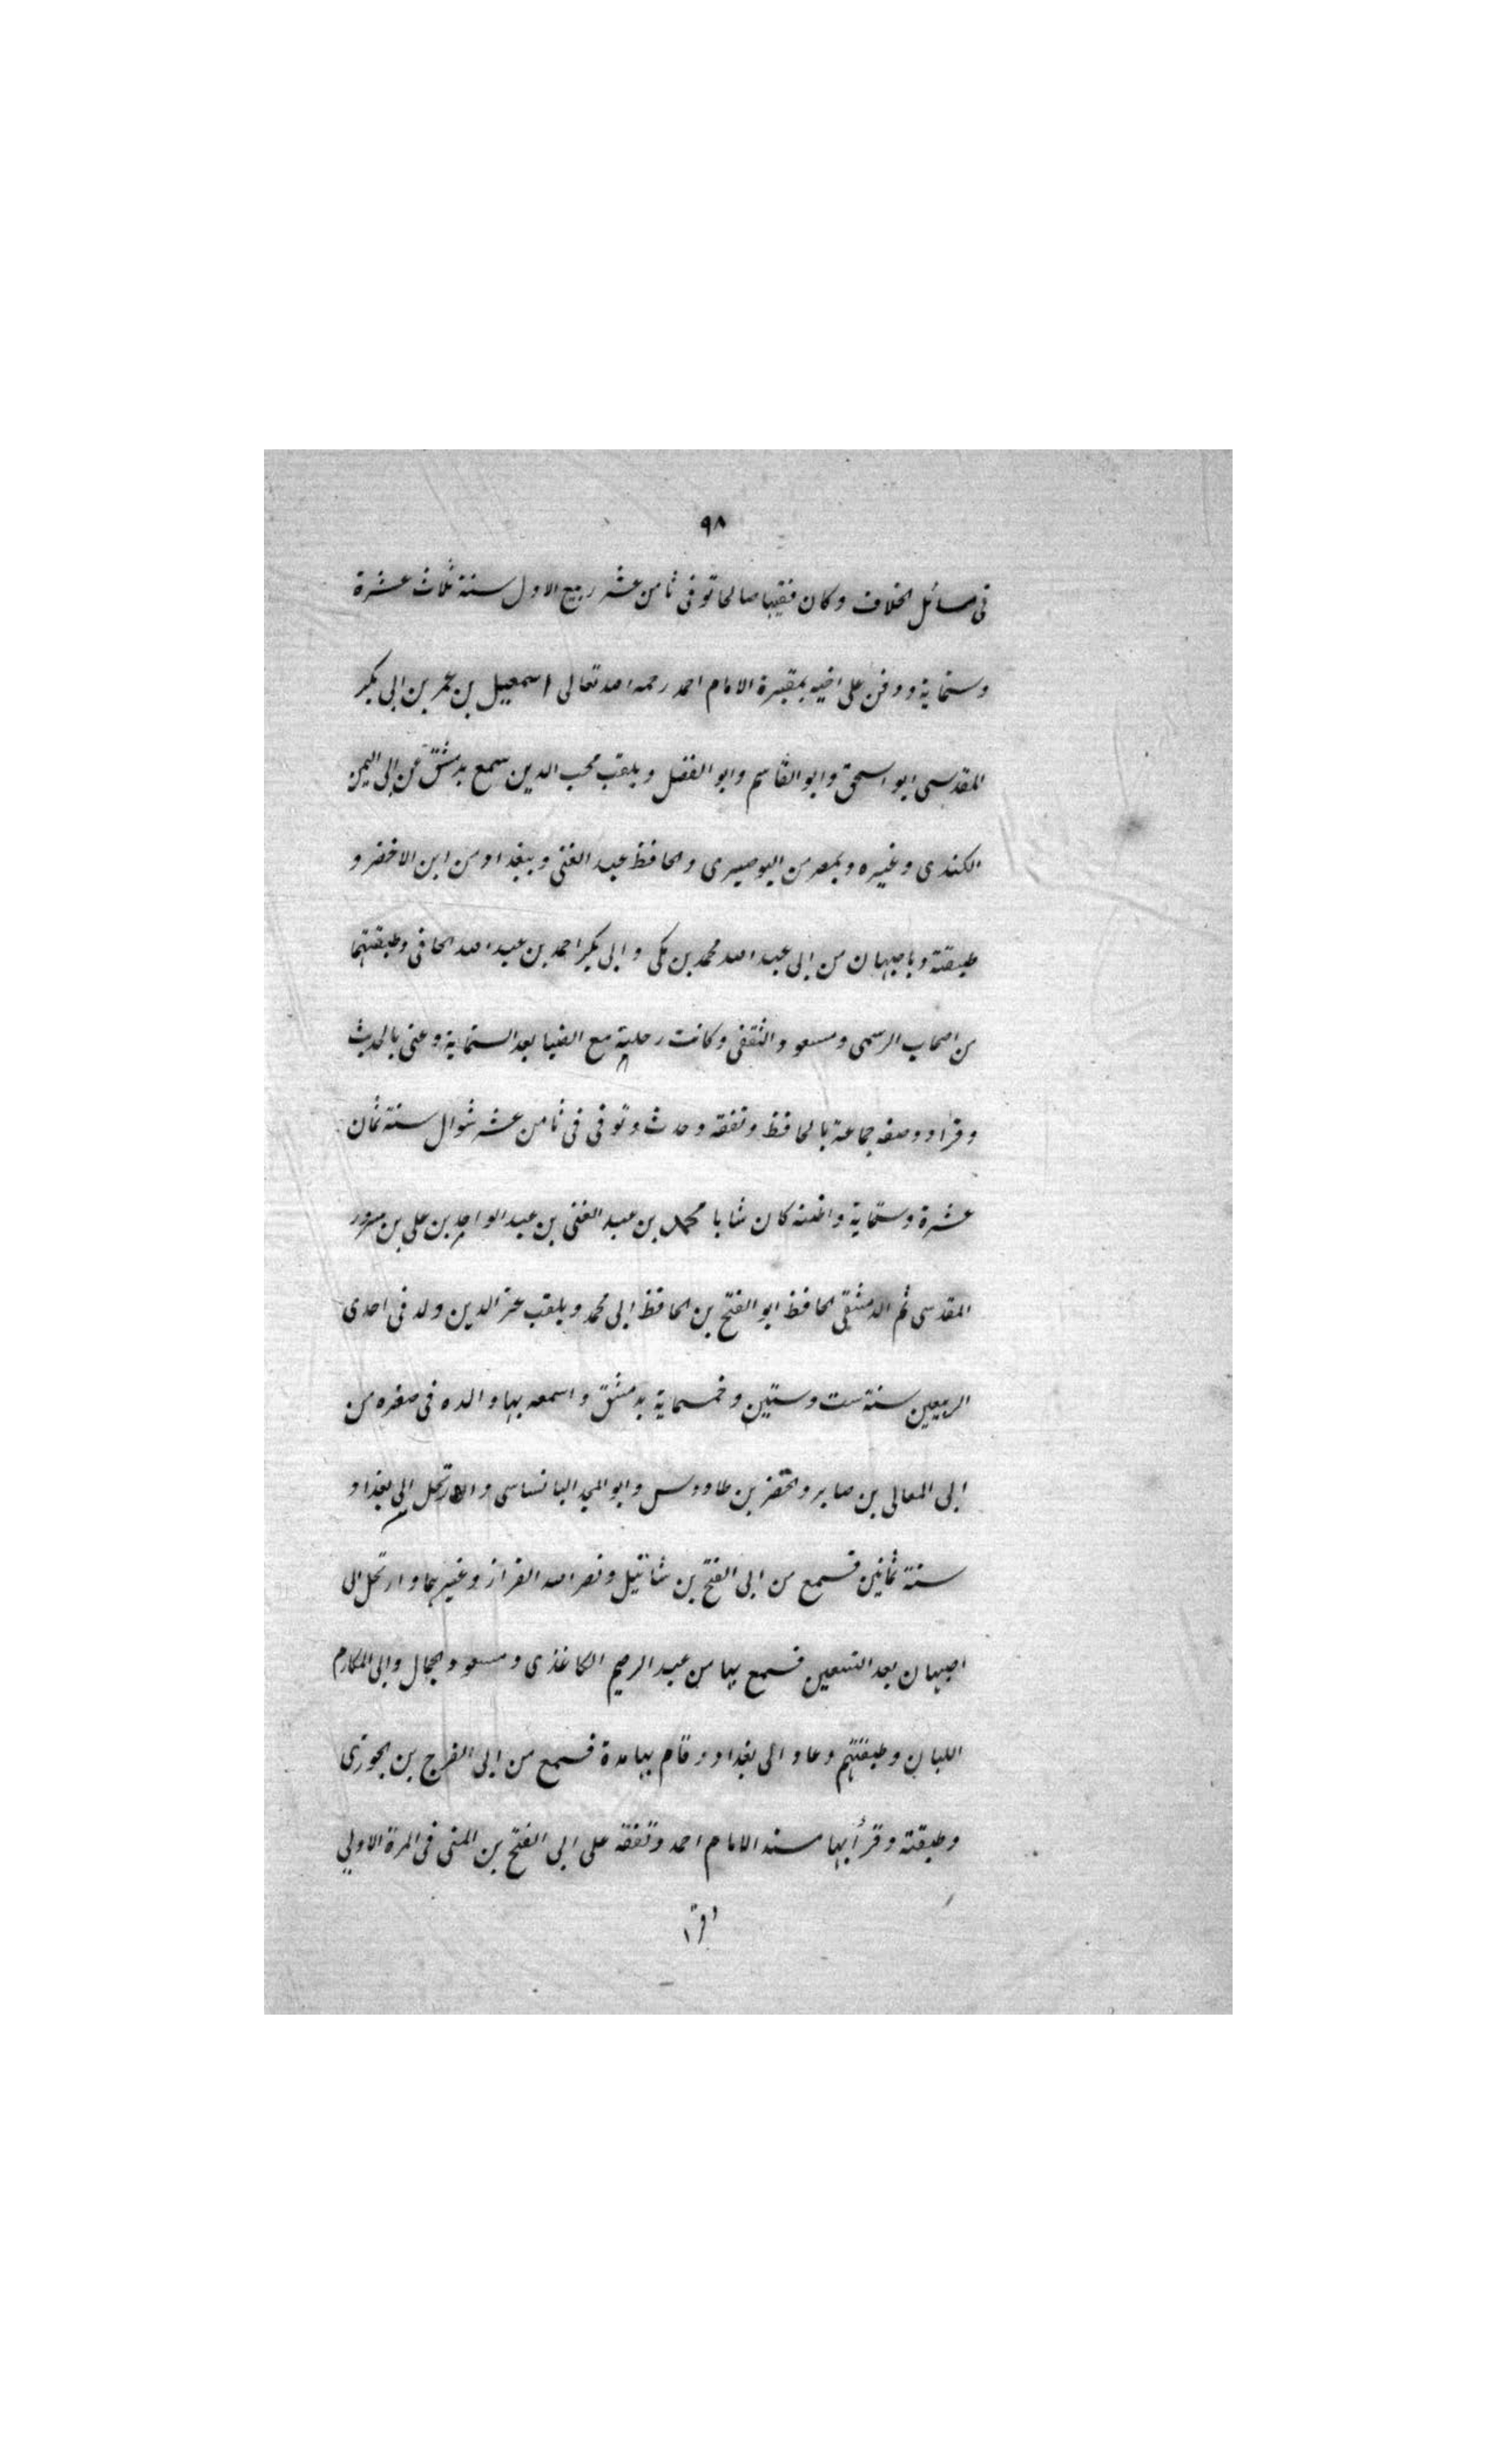 ٩٨
فى مسائل الخلاف وكان فقيها صالحا توفى ثامن عشر ربيع الاول سنة ثلاث عشرة
وستماية ودفن على اخيه بمقبرة الامام احمد رحمه الله تعالى اسمعيل بن عمر بن ابى بكر
المقدسى ابو اسحق وابو القاسم وابو الفضل ويلقب محب الدين سمع بدمشق من ابى اليمن
الكندى وغيره وبمصر من البوصيرى والحافظ عبد الغنى وببغداد من ابن الاخضر و
طبقته وباصبهان من ابى عبد الله محمد بن مكى وابى بكر احمد بن عبد الله الحافى وطبقتهما
من اصحاب الرسمى ومسعود الثقفى وكانت رحليته مع الضيا بعد الستماية وعنى بالحديث
وقراء ووصفه جماعة بالحافظ وتفقه وحدث وتوفى فى ثامن عشر شوال سنة ثمان
عشرة وستماية واظنه كان شابا محمد بن عبد الغنى بن عبد الواحد بن على بن سرور
المقدسى ثم الدمشقى الحافظ ابو الفتح بن الحافظ ابى محمد ويلقب عز الدين ولد فى احدى
الربيعين سنة ست وستين وخمسماية بدمشق واسمعه بها والده فى صغره من
ابى المعالى بن صابر والخضر بن طاووس وابو المجد البانساسى و ارتحل الى بغداد
سنة ثمانين فسمع من ابى الفتح بن شاتيل ونصر الله القزاز وغيرهما وارتحل الى
اصبهان بعد التسعين فسمع بها من عبد الرحيم الكاغذى ومسعود الجمال وابى المكارم
اللبان وطبقتهم وعاد الى بغداد وقام بها مدة فسمع من ابى الفرج بن الجوزى
وطبقته وقرأ بها مسند الامام احمد وتفقه على ابى الفتح بن المنى فى المرة الاولى